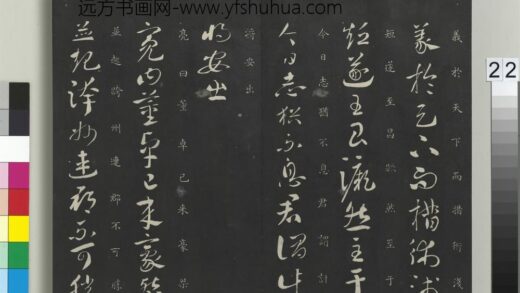 远方书画网-www.yfshuhua.com
22
義於天下而術淺
義於天下而術淺
短遂至昌然至于
短遂至然至于
今日志猶不息君謂計
今日志猶不息君謂計
將安出
將安出
亮曰董卓已來豪桀
亮曰董卓已來豪桀
並起跨州連郡不可勝
並起跨州連郡不可